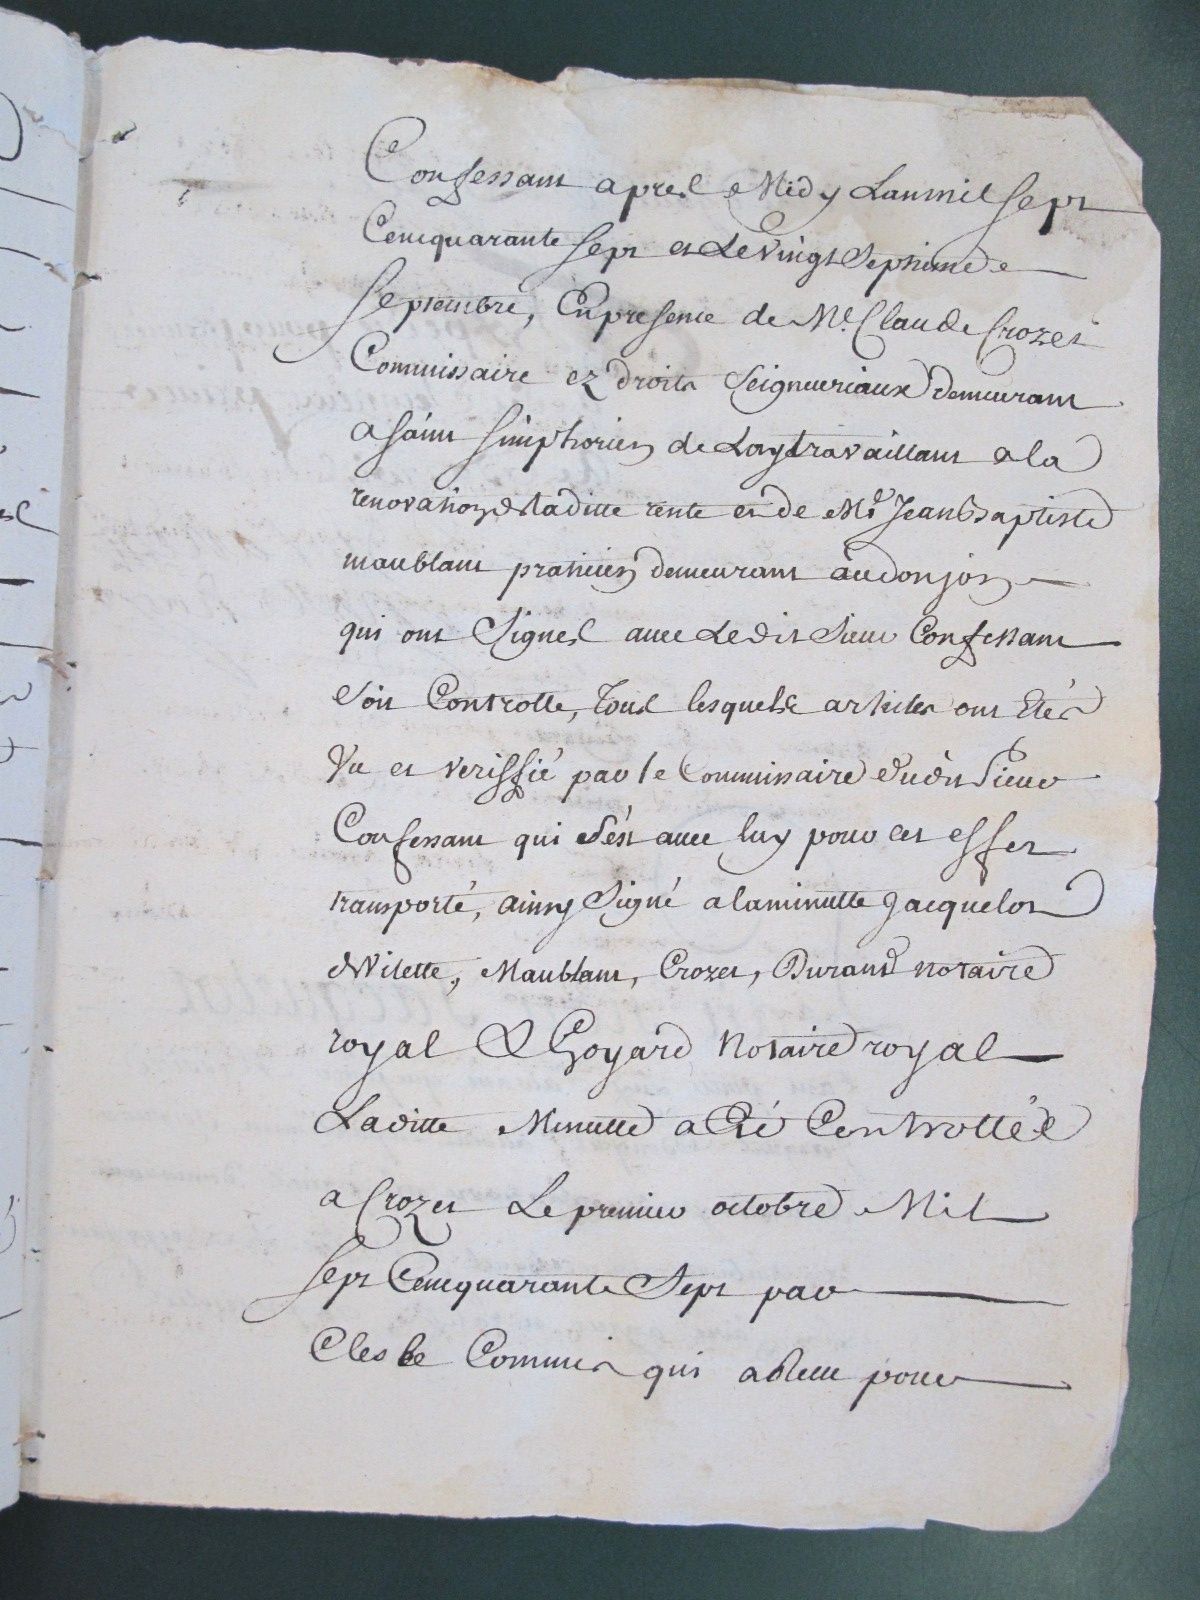 Confessant apres Midy Lanmil sept
Centquarante sept et Le vingt Septiesme
septembre, En presence de Me. Claude Crozet
Commissaire ez droits Seigneuriaux demeurant
a saint simphorien de Lay travaillant a la
renovation de laditte rente et de Me. Jean Baptiste
maublanc praticien demeurant au donjon
qui ont Signes avec Ledit Sieur Confessant
Soit Controlle, Tous lesquels articles ont Etés
Vu et veriffié par le Commissaire dudit Sieur
Confessant qui s'est avec luy pour cet effet
transporté, ainsy Signé a laminutte Jacquelot
dVilette, Maublanc, Crozet, Durand notaire
royal & Goyard Notaire royal
Laditte Minutte a Eté Controttée
a Crozet Le premier octobre Mil
sept Centquarante Sept par
Commis qui a Reçu pour